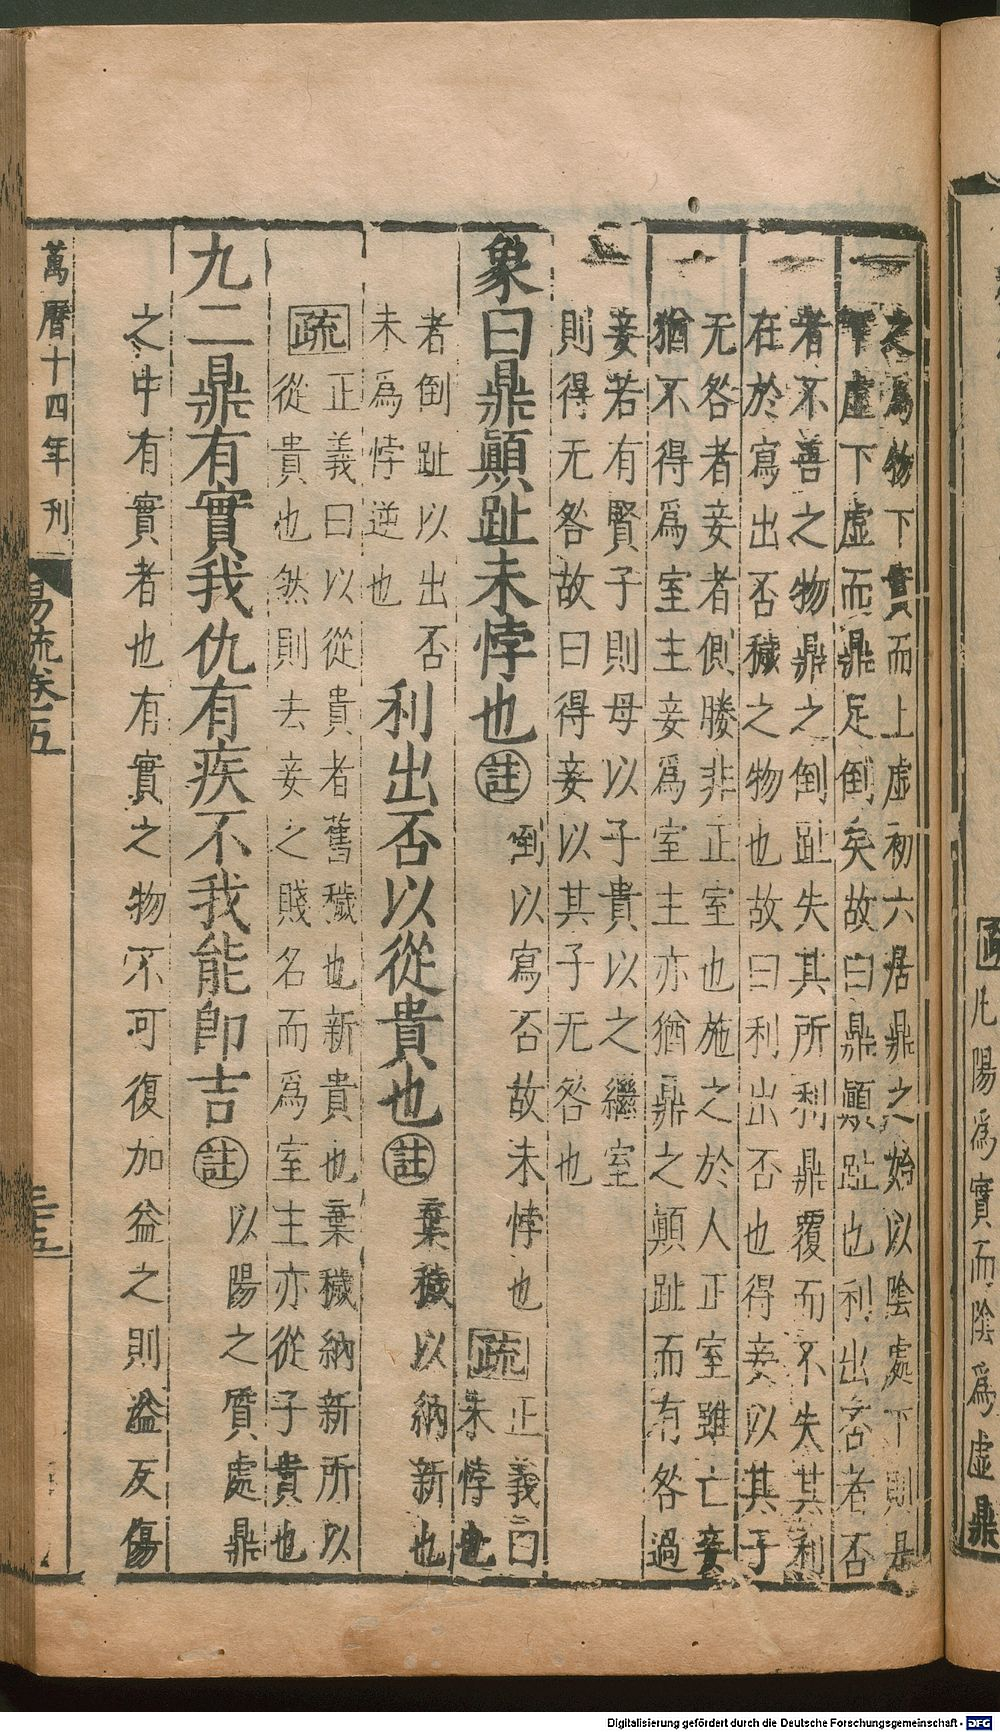 疏凡陽爲實而陰爲虛鼎
之爲物下實而上虛初六居鼎之始以陰處下則是
下虛下虛而鼎足倒矣故曰鼎顚趾也利出否者否
者不善之物鼎之倒趾失其所利鼎覆而不失其利
在於寫出否穢之物也故曰利出否也得妾以其子
无咎者妾者側媵非正室也施之於人正室雖亡妾
猶不得爲室主妾爲室主亦猶鼎之顚趾而有咎過
妾若有賢子則母以子貴以之繼室
則得无咎故曰得妾以其子无咎也
象曰鼎顚趾未悖也註倒以寫否故未悖也疏正義曰未悖也
者倒趾以出否
未爲悖逆也利出否以從貴也註棄穢以納新也
疏正義曰以從貴者舊穢也新貴也棄穢納新所以
從貴也然則去妾之賤名而爲室主亦從子貴也
九二鼎有實我仇有疾不我能卽吉註以陽之質處鼎
之中有實者也有實之物不可復加益之則溢反傷
萬曆十四年刊
易疏卷五
三五
Digitalisierung gefördert durch die Deutsche Forschungsgemeinschaft - DFG